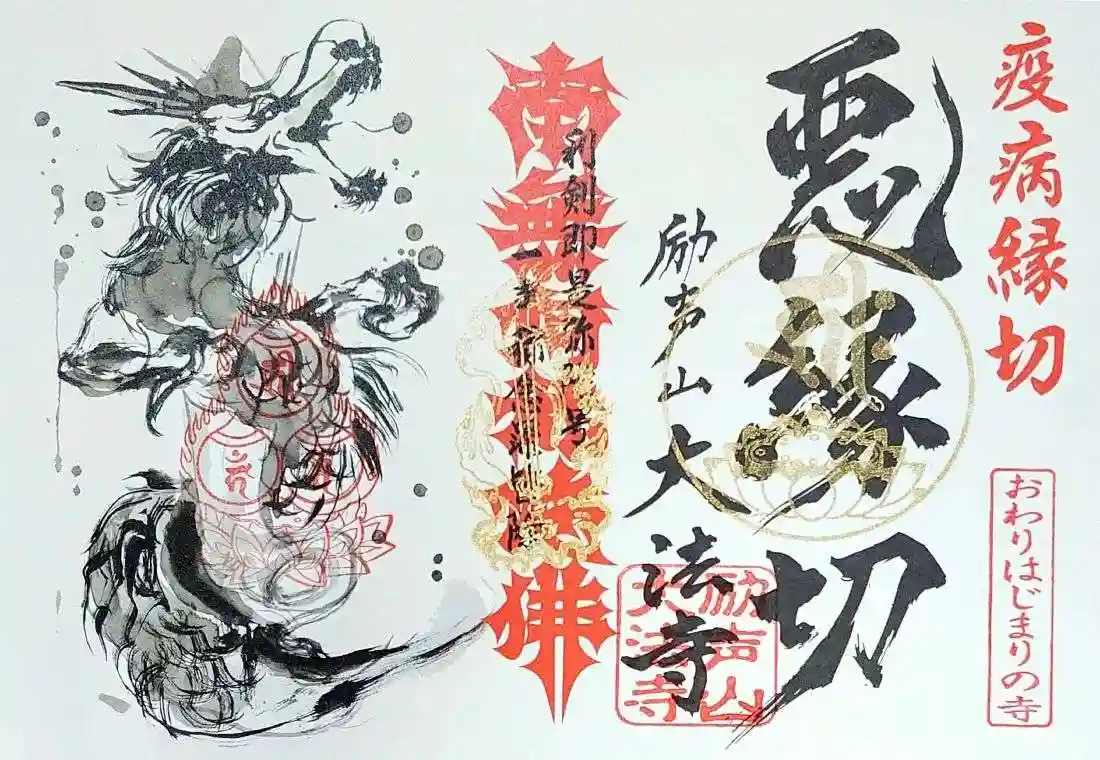 疫病縁切
おわりはじまりの寺
悪縁切
励声山大法寺
励声山
大法寺
南無阿弥陀佛
利剣即是弥陀号
一声称念罪皆除